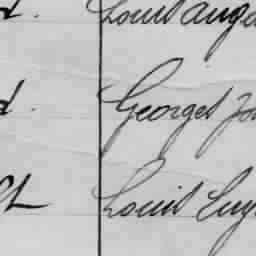 Louis Aug
Georges Jo
Louis Eug